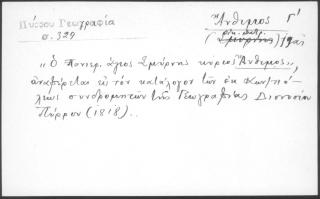 Πύρρου Γεωγραφία
σ. 329
Ἄνθιμος Γ΄
(Σμύρνης) 19ος
"Ὁ Πανιερ. ἅγιος Σμύρνης κύριος Ἄνθιμος",
ἀναφέρεται εἰς τὸν κατάλογον τῶν ἐκ Κων)πό-
λεως συνδρομητῶν τῆς Γεωγραφίας Διονυσίου
Πύρρου (1818)..